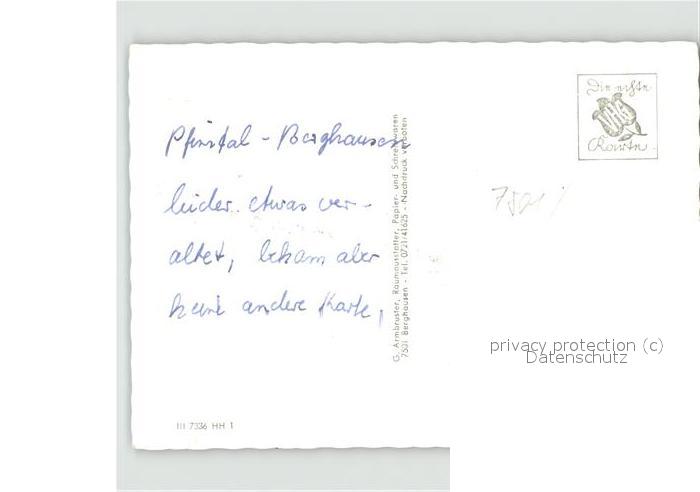 Pfinztal - Berghausen
leider etwas ver-
altet, bekam aber
keine andere Karte,
G. Armbruster, Raumausstatter, Papier- und Schreibwaren
7501 Berghausen - Tel. 0721/41625 - Nachdruck verboten
Die echte
Karte
7501/
privacy protection (c)
Datenschutz
III 7336 HH 1